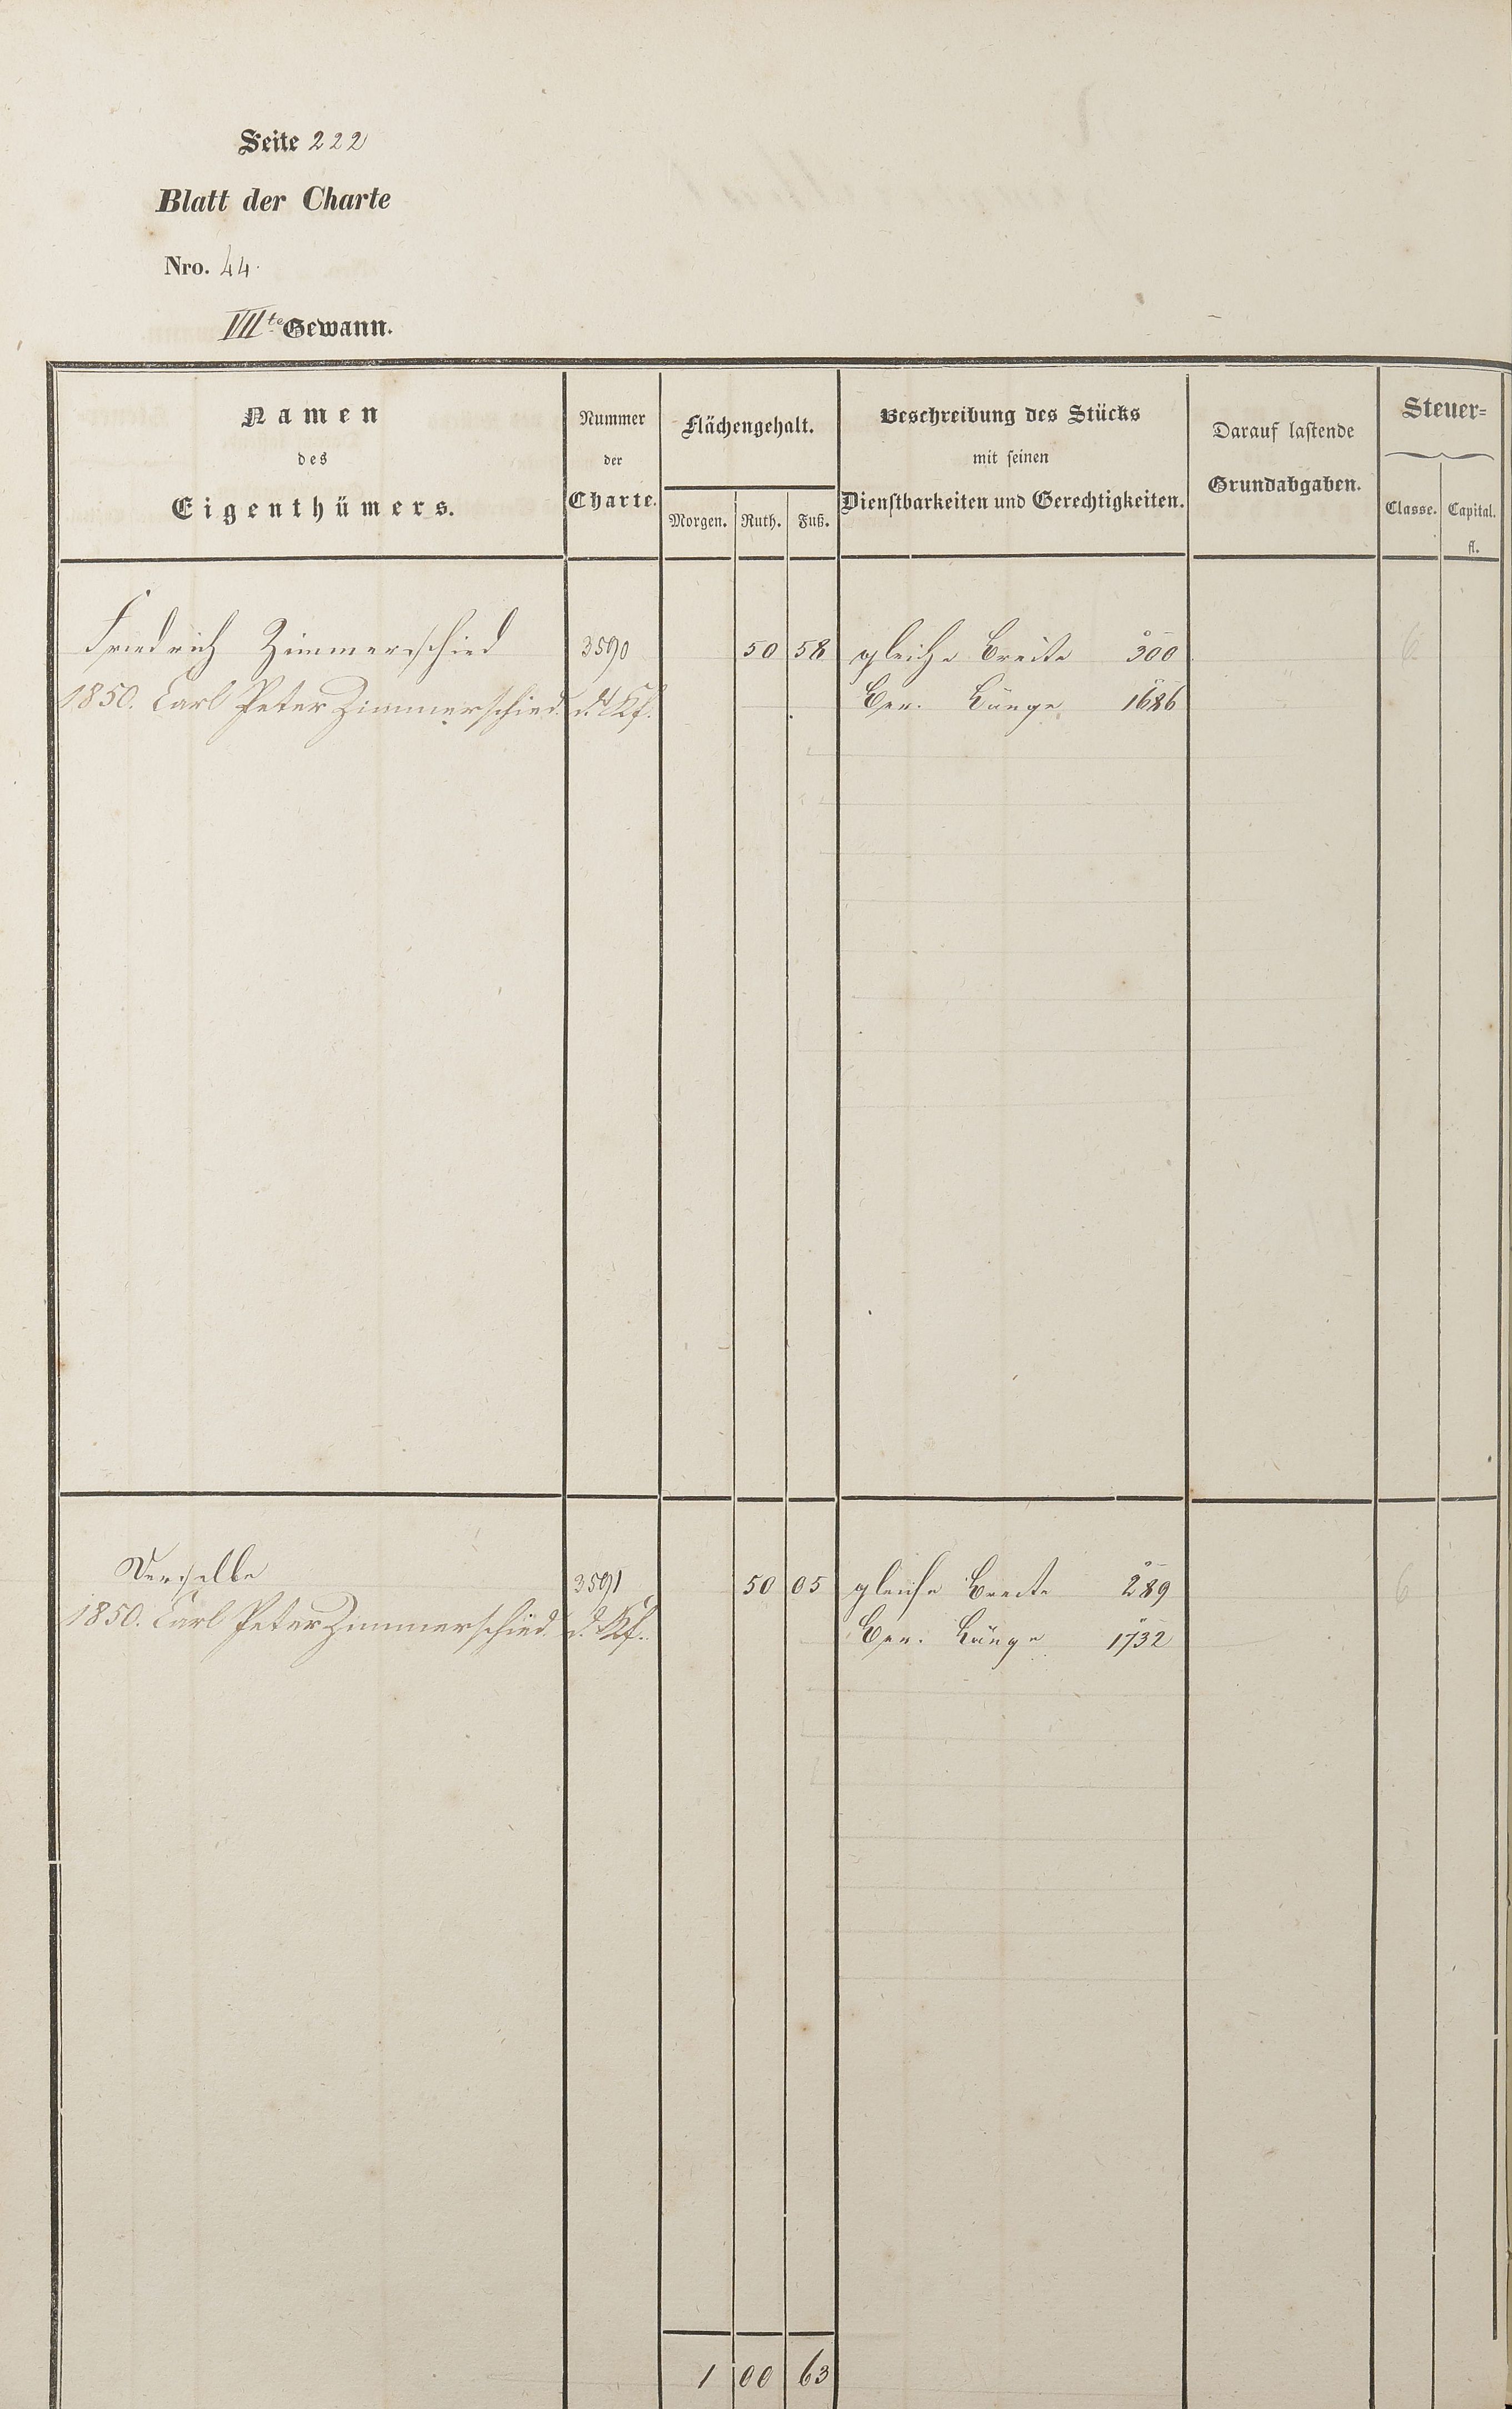 Seite 222
Blatt der Charte
Nro. 44.
VIIte Gewann.
Namen
des
Eigenthümers.
Nummer
der
Charte.
Flächengehalt.
Morgen. Ruth. Fuß.
Beschreibung des Stücks
mit seinen
Dienstbarkeiten und Gerechtigkeiten.
Darauf lastende
Grundabgaben.
Steuer=
Classe. Capital.
fl.
Friedrich Zimmerschied 3590 50 58 gleiche Breite 300 6
1850. Carl Peter Zimmerschied. d. Kf. Ber. Länge 1686
Derselbe 3591 50 05 gleiche Breite 289 6
1850. Carl Peter Zimmerschied. d. Kf. Ber. Länge 1732
1 00 63